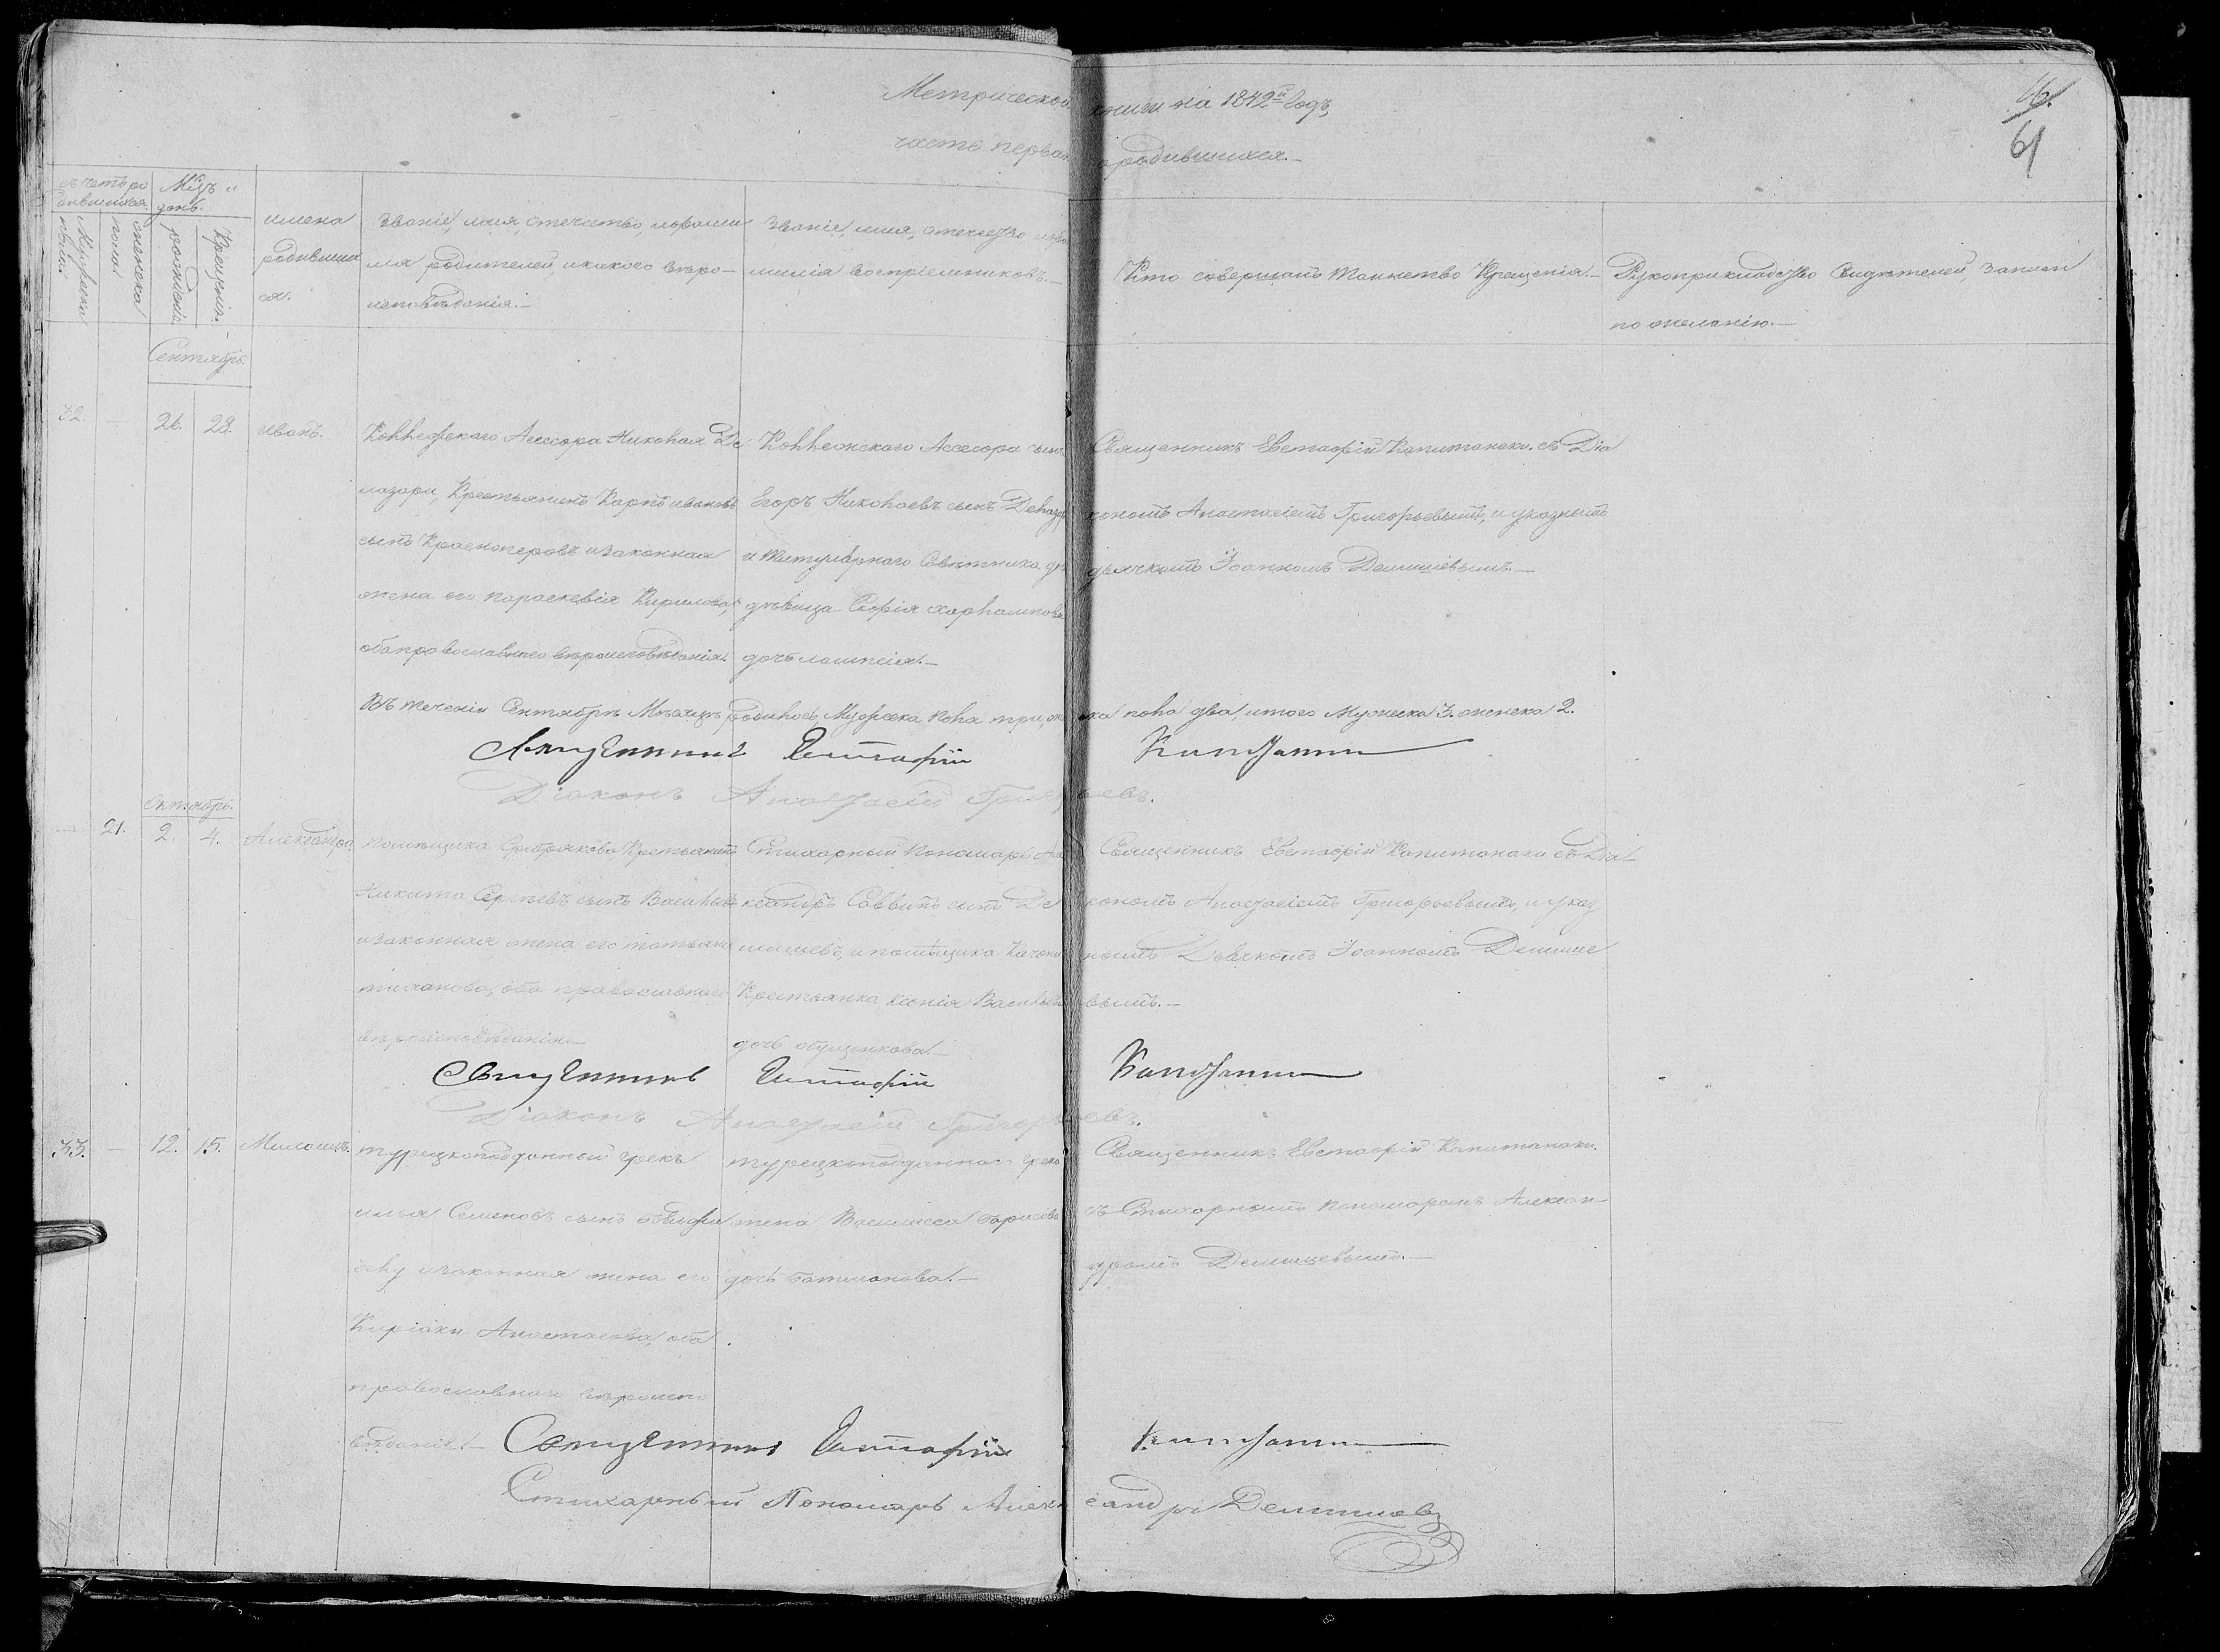 Метрической книги на 1842й Годъ,
46.
61
часть первая о родившихся.—
Мѣцъ и
день.
Мужеска
женска
пола.
рожденія.
Крещенія.
имена
родивших
ся.
Званіе, имя отечество, и фами
лія родителей, и какого вѣро—
исповѣданія.—
Званіе, имя, отечество и фа
милія воспріемниковъ.—
Кто совершалъ таинство Крещенія.—
Рукоприкладство Свидѣтелей, записи
по желанію.—
Сентябрь.
32.
—
26.
28.
Иванъ.
Коллежскаго Ассесора Николая Де
лазари, Крестьянинъ Карпъ Ивановъ
сынъ Красноперовъ и законная
жена его Параскевія Кирилова,
оба православнаго вѣроисповѣданія.
Коллежскаго Ассесора сынъ
Егоръ Николаевъ сынъ Делазари
и Титулярнаго Совѣтника
дѣвица Софія Харлампова
дочь
Священникъ Евстафій Капитанаки съ Діа
кономъ Анастасіемъ Григорьевымъ, и указнымъ
дьячкомъ Іоанномъ Демишевымъ.—
Въ теченіи Сентябрѣ Мѣсяцѣ родилось Мужеска пола три, женска пола два, итого Мужеска 3. женска 2.
Священникъ Евстафій Капитанаки
Діаконъ Анастасій Григорьевъ.
Октябрь.
—
21.
2.
4.
Александра
помѣщика Крестьянинъ
Никита Сергѣевъ сынъ Васильевъ
и законная жена его татьяна
оба православнаго
вѣроисповѣданія.—
Стихарный Пономарь Але
ксандръ Саввинъ сынъ Де
мишевъ, и помѣщика
Крестьянка Ксенія Васильева
дочь
Священникъ Евстафій Капитанаки съ Діа
кономъ Анастасіемъ Григорьевымъ, и указ
нымъ Дьячкомъ Іоанномъ Демише
вымъ.—
Священникъ Евстафій Капитанаки
Діаконъ Анастасій Григорьевъ.
33.
—
12.
15.
турецкоподданный грекъ
илья Семеновъ сынъ
и законная жена его
Киріаки Анастасова, оба
православнаго вѣроиспо
вѣданія.—
турецкоподданнаго грека
жена Василисса Борисова
дочь
Священникъ Евстафій Капитанаки.
съ Стихарнымъ пономаремъ Алексан—
дромъ Демишевымъ.—
Священникъ Евстафій Капитанаки
Стихарный Пономарь Александръ Демишевъ